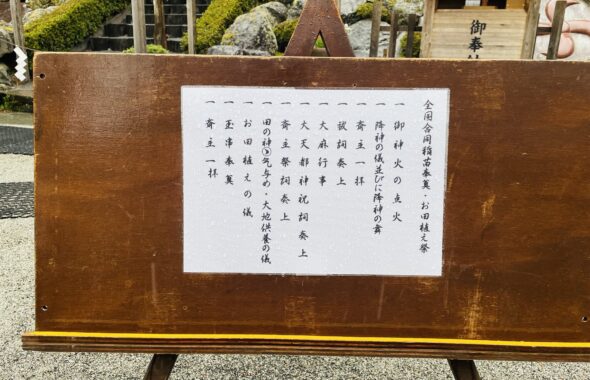 全国合同稲苗奉奠・お田植え祭
一 御神火の点火
一 降神の儀並びに降神の舞
一 斎主一拝
一 祓詞奏上
一 大麻行事
一 大天都神祝詞奏上
一 斎主祭詞奏上
一 田の神㋰気与め・大地供養の儀
一 お田植えの儀
一 玉串奉奠
一 斎主一拝
御奉